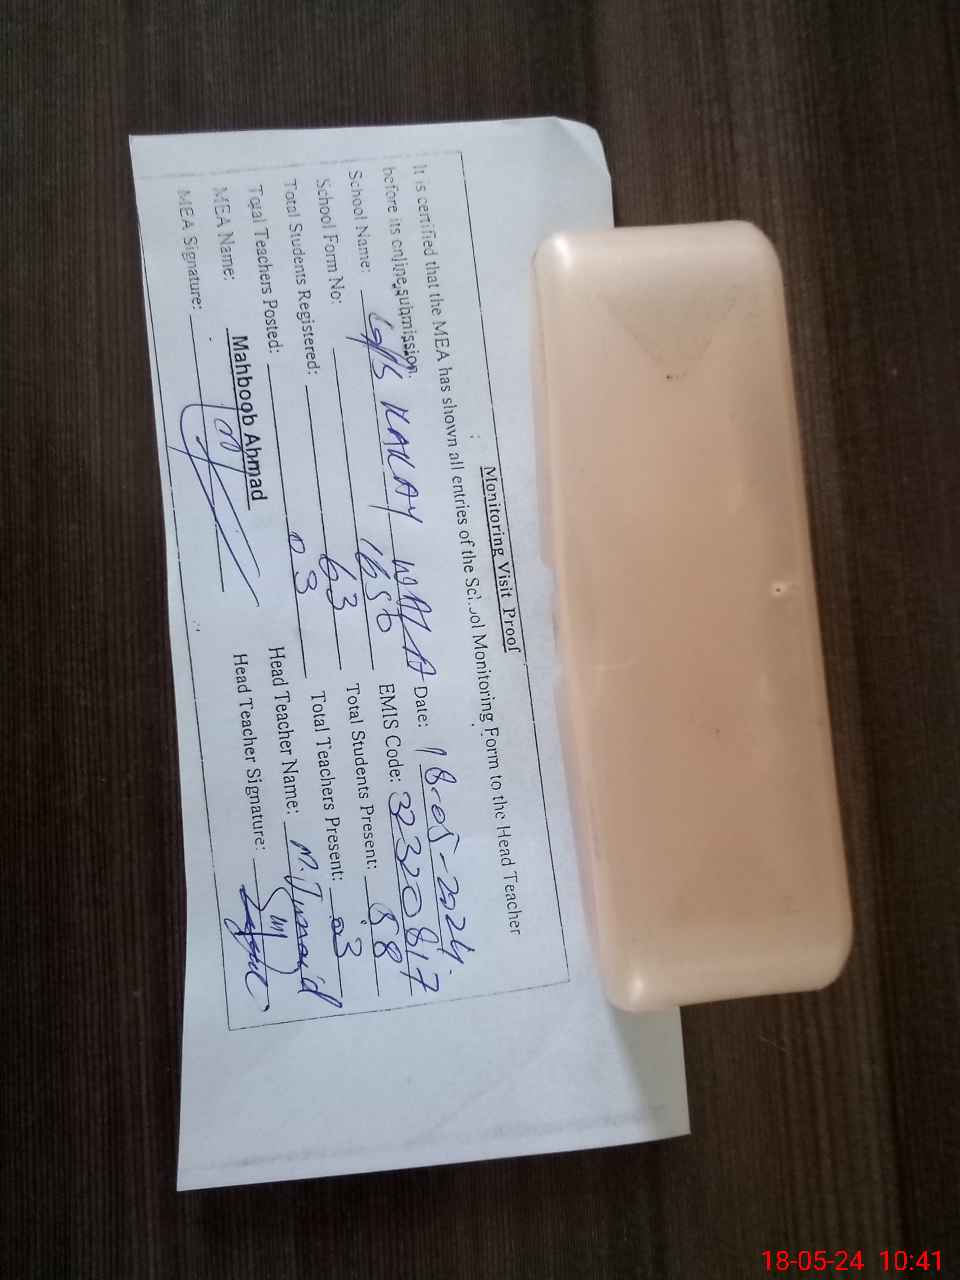 Monitoring Visit Proof
It is certified that the MEA has shown all entries of the School Monitoring Form to the Head Teacher
before its online submission.
School Name: GPS KAKAY WALA Date: 18-05-2024.
School Form No: 1656 EMIS Code: 32320817
Total Students Registered: 63 Total Students Present: 58
Total Teachers Posted: 03 Total Teachers Present: 03
MEA Name: Mahboob Ahmad Head Teacher Name: M. Junaid
MEA Signature: Head Teacher Signature:
18-05-24 10:41